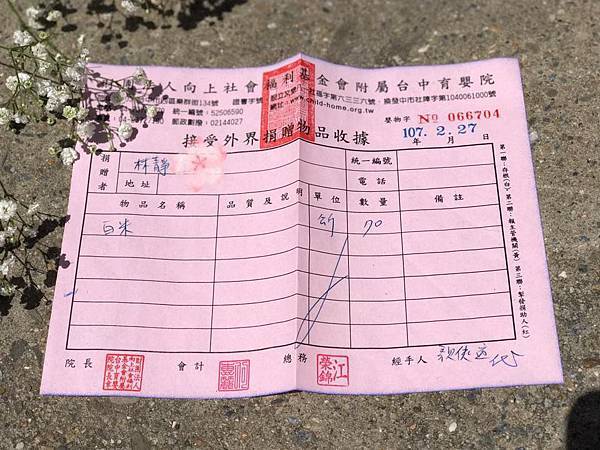 人向上社會福利基金會附屬台中育嬰院
區樂群街134號 證書字號
設立及 社福字第六三三六號．換發中市社障字第1040061000號
統一編號：52506590
網址：www.child-home.org.tw
郵政劃撥：02144027
嬰物字 No 066704
接受外界捐贈物品收據
107. 2. 27
年 月 日
捐贈者 林靜 統一編號
地址 電話
物品名稱 品質及說明 單位 數量 備註
白米 斤 70
第一聯：存根(白) 第二聯：報主管機關(黃) 第三聯：製發捐助人(紅)
院長 會計 總務 經手人